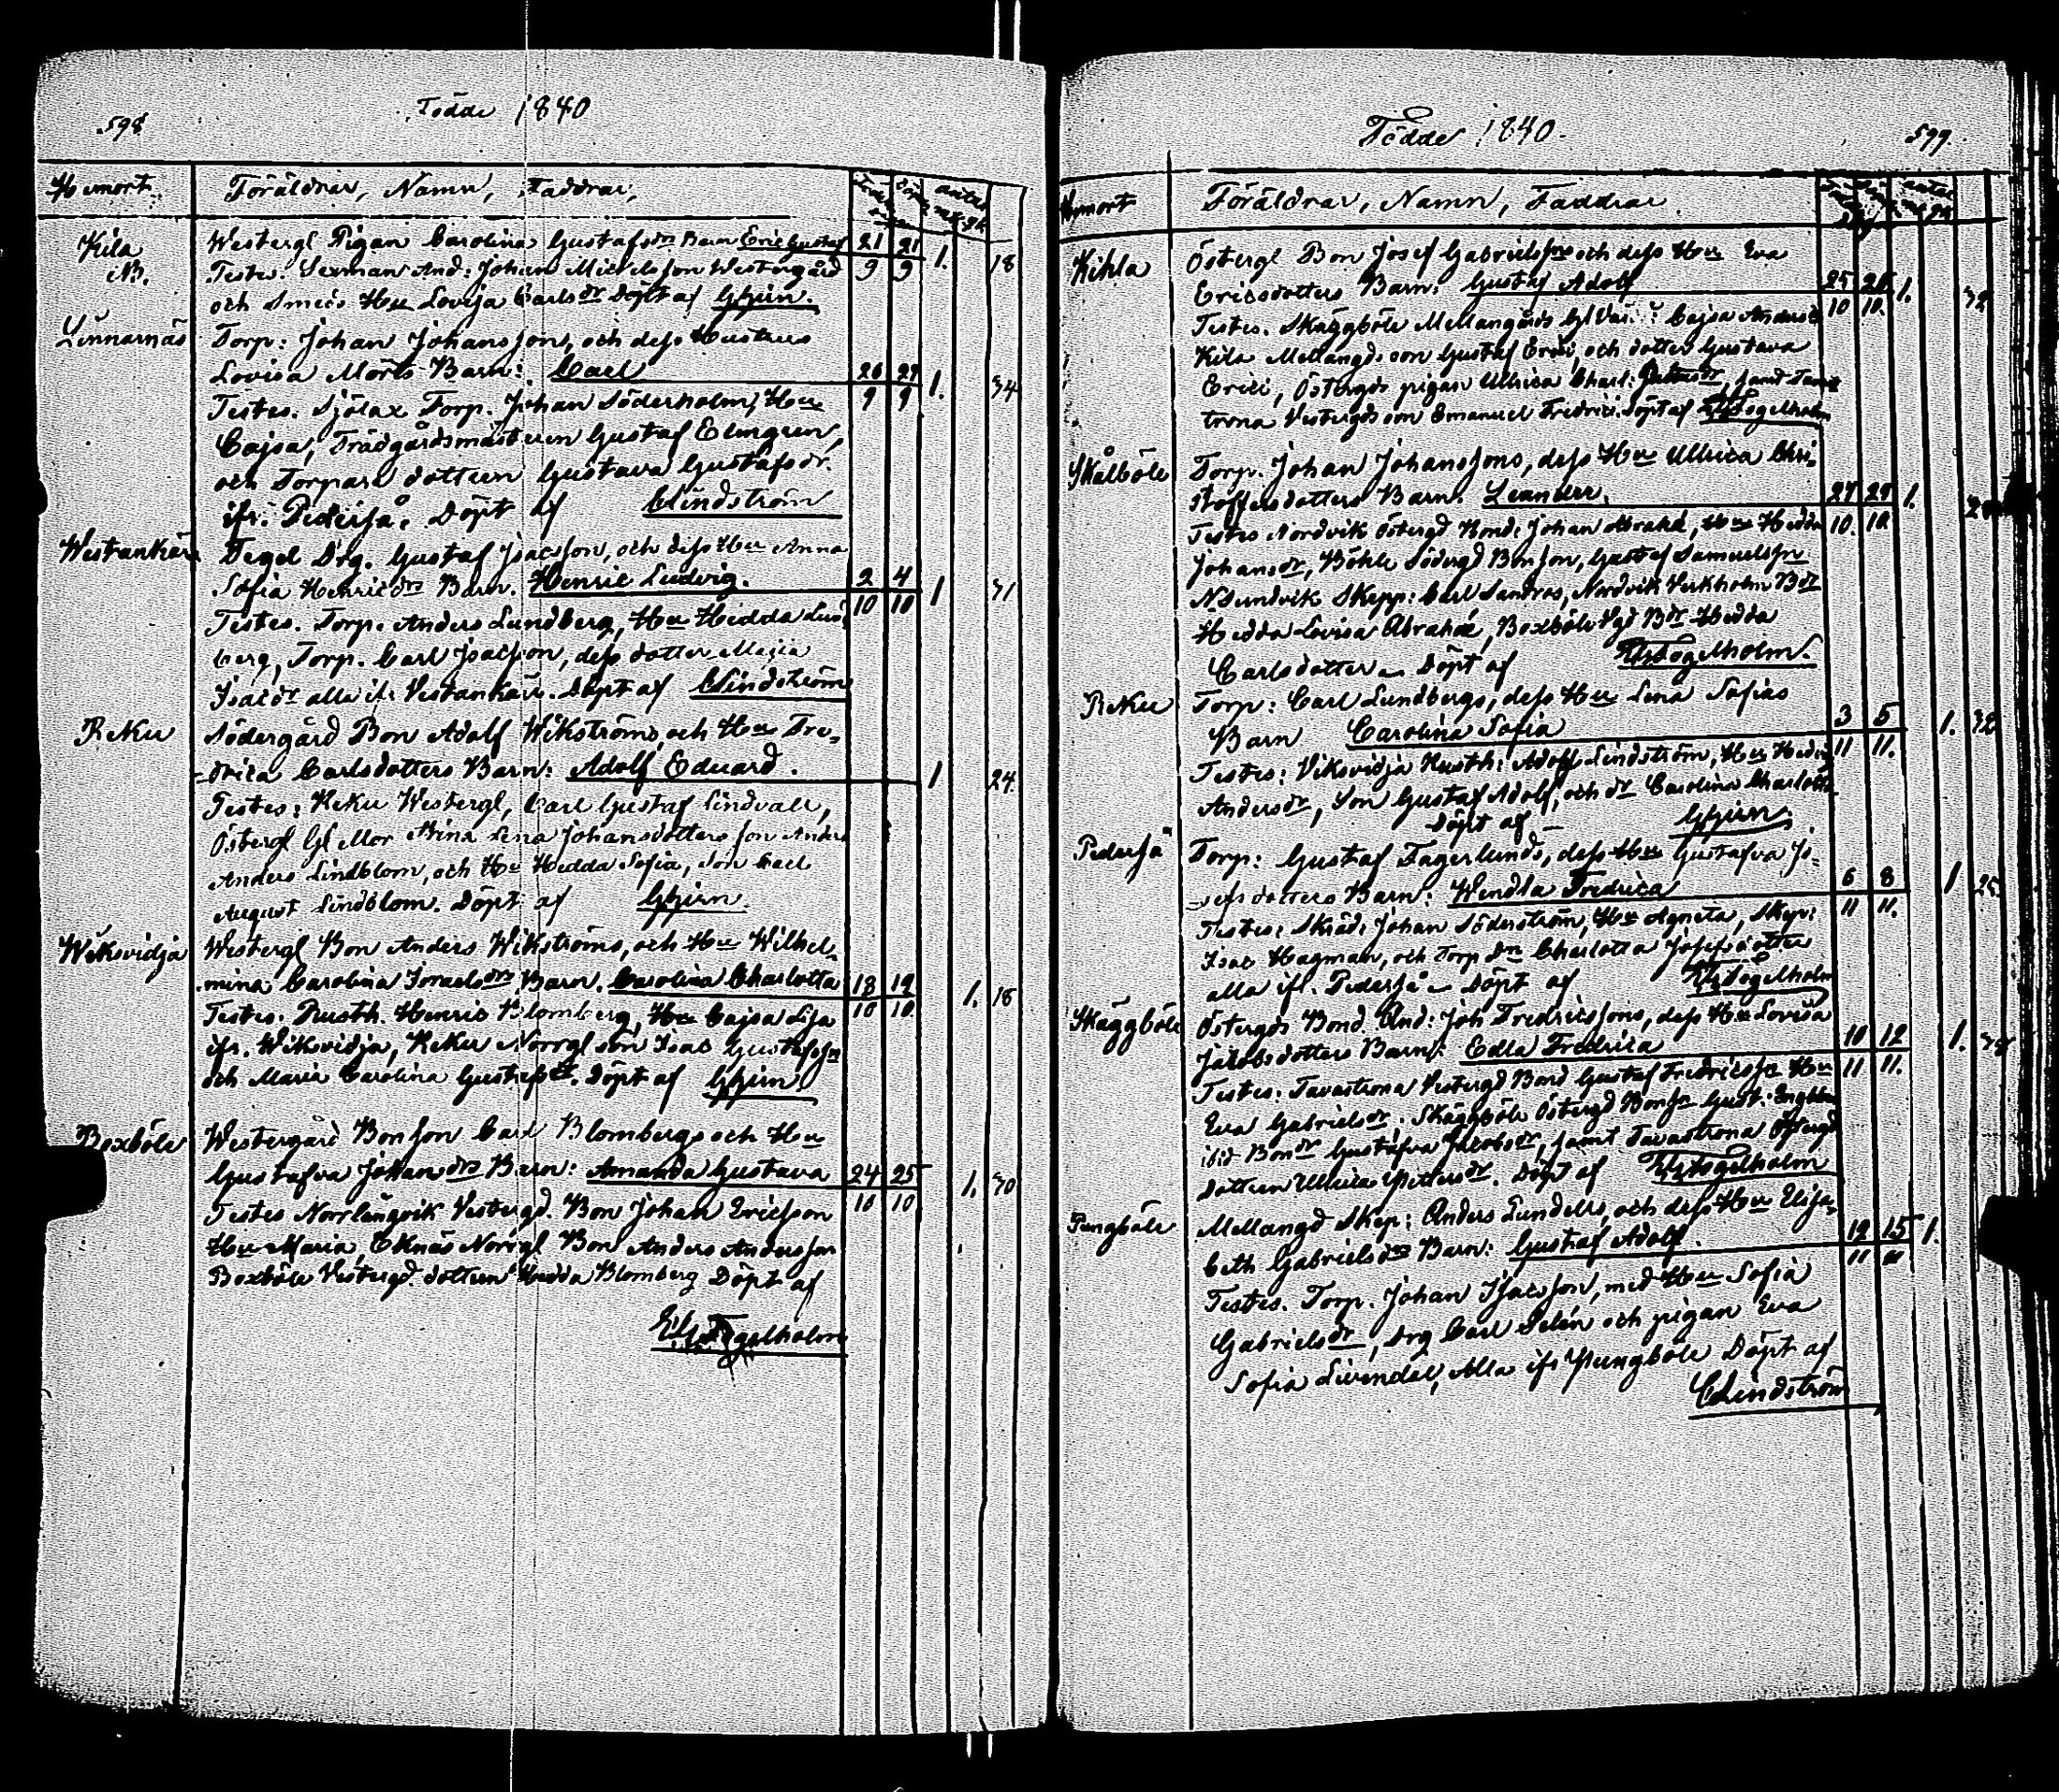 598
Födde 1840
Hemort. Föräldrar, Namn, Faddrar,
Kila Westergl Pigan Carolina Gustafsdrs Barn Eric Gustaf 21 21 1. 18
Testes: Sexman And: Johan Mickelsson Westergård 9 9
och Smeds Hu Lovisa Carlsdr Döpt af
Linnarnäs Torp: Johan Johanssons, och dess Hustrus
Lovisa Mörts Barn: Carl 26 27 1. 34
Testes. Sjölax Torp. Johan Söderholm, Hu 9 9
Cajsa, Trädgårdsmästaren Gustaf Elmgren,
och Torpare dottren Gustava Gustafsdr.
ifr. Pederså. Döpt af CLindström
Westankärr Tegel Drg. Gustaf Isacsson, och dess Hu Anna
Sofia Henricdrs Barn. Henric Ludvig. 2 4 1 31
Testes. Torp. Anders Lundberg, Hu Hedda Lund 10 10
berg, Torp. Carl Isacsson, dess dotter Maria
Isacdr alla ifr Vestankärr. Döpt af CLindström
Reku Södergård Bon Adolf Wikströms och Hu Fre-
drica Carlsdotters Barn: Adolf Eduard. 1 24.
Testes: Reku Westergl, Carl Gustaf Lindvall,
Östergl Gl Mor Stina Lena Johansdotters son Anders
Anders Lindblom, och Hu Hedda Sofia, Son Carl
August Lindblom. Döpt af
Wiksvidja Westergl Bon Anders Wikströms, och Hu Wilhel-
mina Carolina Israelsdrs Barn. Carolina Charlotta 18 19 1. 18
Testes. Rusth. Henric Blomberg, Hu Cajsa Lisa 10 10
ifr. Wiksvidja, Reku Norrgl son Isac Gustafssn
och Maria Carolina Gustafsdr. Döpt af
Boxböle Westergård Bonson Carl Blombergs och Hu
Gustafva Johansdrs Barn: Amanda Gustava 24 25 1. 30
Testes Norrlångvik Vestergd. Bon Johan Ericsson 10 10
Hu Maria, Eknäs Norrgl Bon Anders Andersson
Boxböle Vestergd. dottren Hedda Blomberg Döpt af
Fogelholm
Födde 1840. 599.
Hemort Föräldrar, Namn, Faddrar
Kihla Östergl Bon Josef Gabrielssns och dess Hu Eva
Ericsdotters Barn: Gustaf Adolf 25 26 1. 32
Testes. Skäggböle Mellangårds Cajsa Andersd 10 10.
Kila Mellangds son Gustaf Erici, och dotter Gustava
Erici, Östergds pigan Ullrica Charl: samt Tavas
trona Vestergds son Emanuel Fredrici. Döpt af Fogelholm
Skålböle Torp. Johan Johanssons, dess Hu Ullrica Chri-
stoffersdotters Barn. Leander. 27 29 1.
Testes Nordvik Östergd Bond: Johan Abrahd, Hu Hedda 10. 10
Johansdr, Böhle Södergd Bonson, Gustaf Samuelssn
N.Sundvik Skepp: Carl Sandros, Nordvik Verkholm Bdr
Hedda Lovisa Abrahd, Boxböle Vgd Bdr Hedda
Carlsdotter Döpt af Fogelholm.
Reku Torp: Carl Lundbergs, dess Hu Lena Sofias
Barn Carolina Sofia 3 5 1. 32
Testes: Viksvidja Rusth: Adolf Lindström, Hu Hedvig 11 11.
Andersdr, Son Gustaf Adolf, och dr Carolina Charlotta
Döpt af
Pederså Torp: Gustaf Fagerlunds, dess Hu Gustafva Jo-
sefsdotters Barn: Wendla Fredrica 6 8 1 25
Testes: Skräd: Johan Söderström, Hu Agneta, Skepp: 11 11.
Isac Hagman, och Torp drn Charlotta Josefsdotter
alla ifr. Pederså Döpt af Fogelholm
Skäggböle Östergds Bond. And: Joh Fredricssons, dess Hu Lovisa
Jacobsdotters Barn: Edla Fredrica 10 12 1.
Testes: Tavastrona Vestergd Bond Gustaf Fredricssn Hu 11 11.
Eva Gabrielsdr, Skäggböle Östergd Bonsn Gust:
ibid Bondr Gustafva Jacobsdr, samt Tavastrona Östergd
dottren Ullrica Pettersdr. Döpt af Fogelholm
Pungböle Mellangd Skep: Anders Lundells, och dess Hu Elisa-
beth Gabrielsdrs Barn: Gustaf Adolf. 12 15 1.
Testes. Torp. Johan Isacsson, med Hu Sofia 11 11
Gabrielsdr, Drg Carl Selén och pigan Eva
Sofia Livendal, Alla ifr Pungböle Döpt af
CLindström